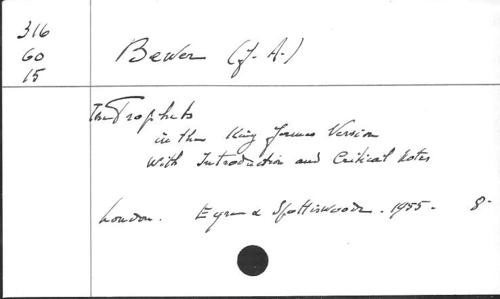 316
60
15
Bewer (J. A.)
The Prophets
in the King James Version
With Introduction and Critical Notes
London. Eyre & Spottiswoode. 1955. 8.